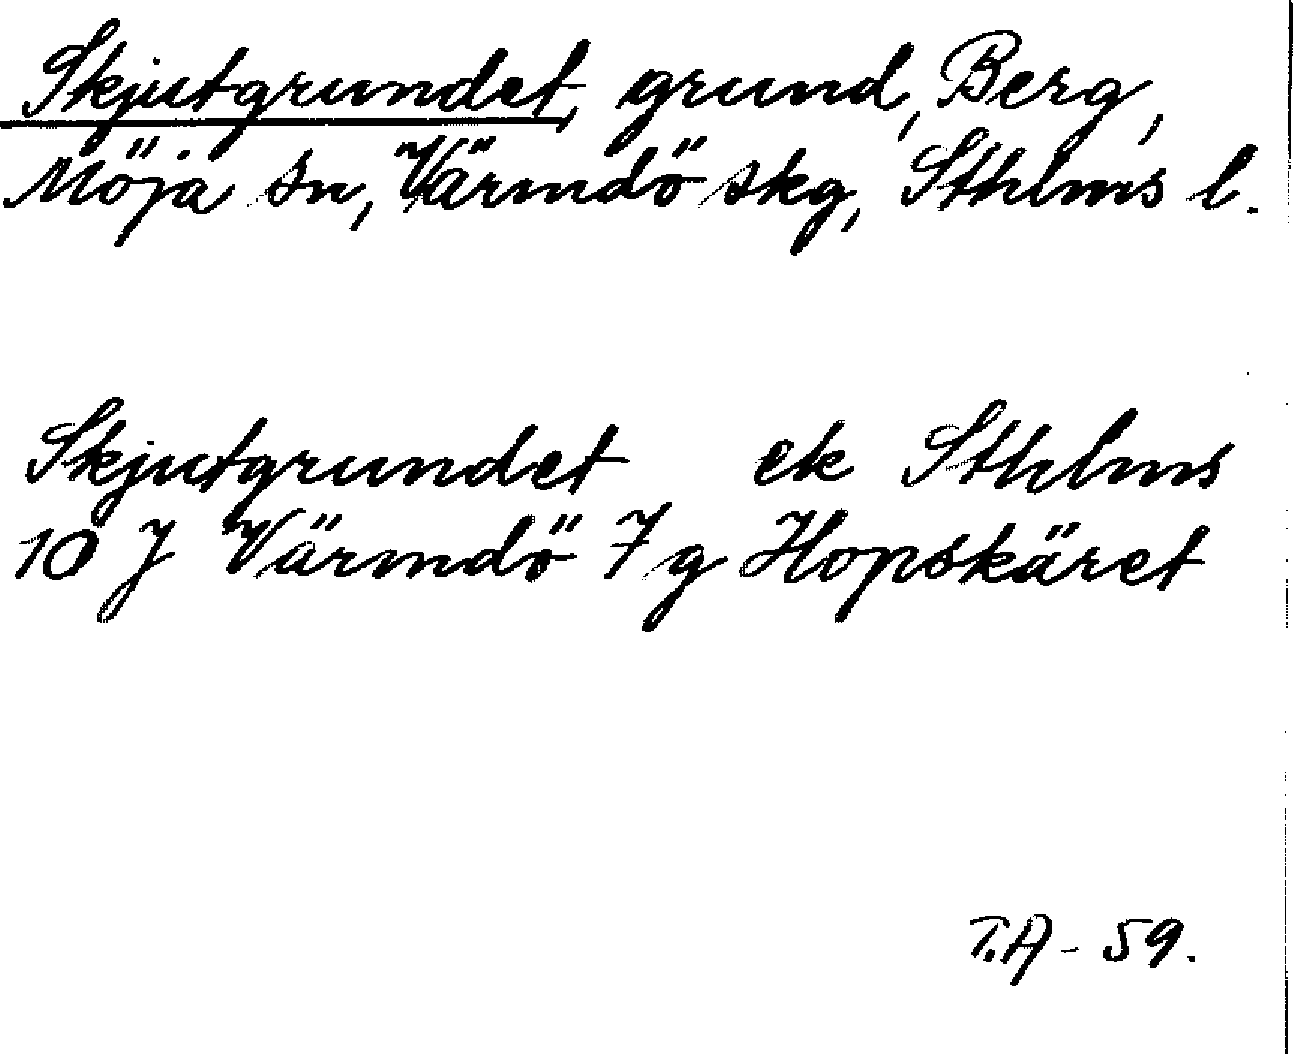 Skjutgrundet, grund, Berg,
Möja sn, Värmdö skg, Sthlms l.
Skjutgrundet ek Sthlms
10 J Värmdö 7 g Hopskäret
T.A - 59.